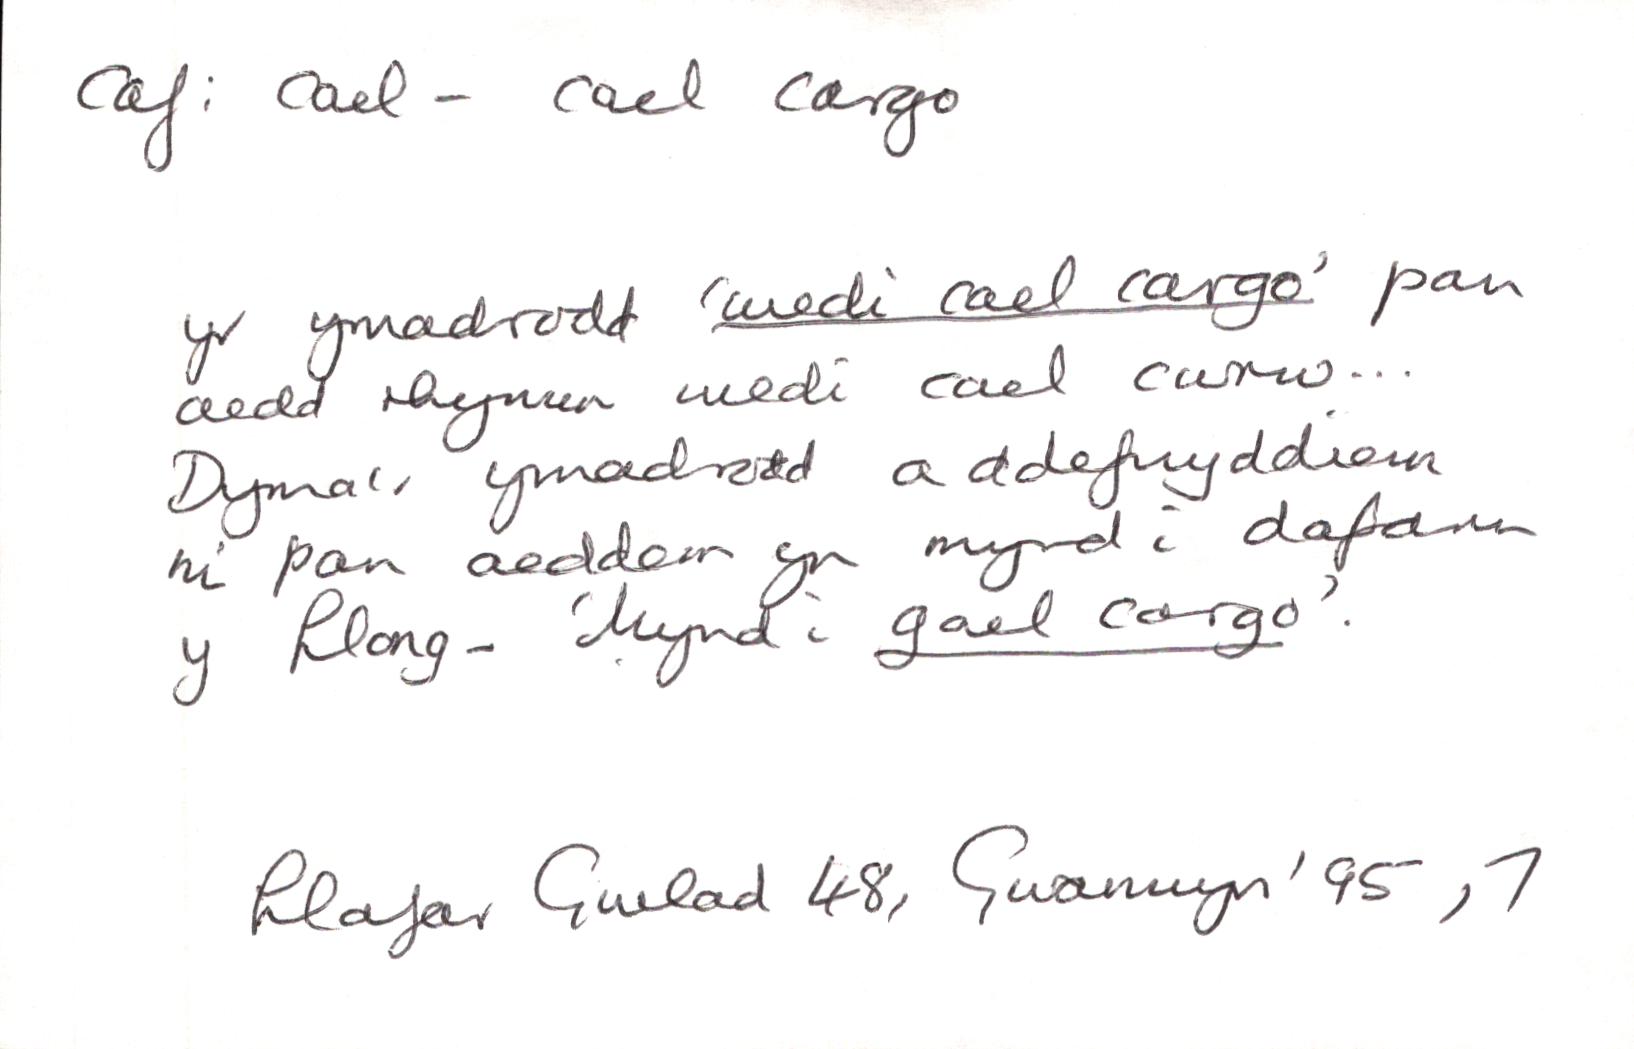 Caf: Cael - cael cargo
yr ymadrodd 'wedi cael cargo' pan
aedd rhywun wedi cael cwrw...
Dyma'r ymadrodd a ddefnyddiem
ni pan aeddem yn mynd i dafarn
y Llong - 'Mynd i gael cargo'.
Llafar Gwlad 48, Gwanwyn '95, 7